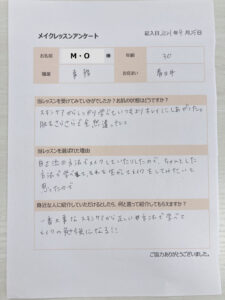 メイクレッスンアンケート
記入日 2021年 月25日
お名前 M・O 様 年齢 30
職業 事務 お住まい 春日井
当レッスンを受けてみていかがでしたか？お肌の状態はどうですか？
スキンケアからしっかり学べていつもよりキレイにしあがった。
肌もさらさらで全然違った。
当レッスンを選ばれた理由
自己流の方法でメイクをしていたりしたので、ちゃんとした
方法で学べ メイクをしてみたいと
思ったので
最近な人に紹介していただけるとしたら、何と言って紹介してもらえますか？
一番大事なスキンケアから正しい方法で学べて
メイクの勉強になる！！
ご協力ありがとうございました。